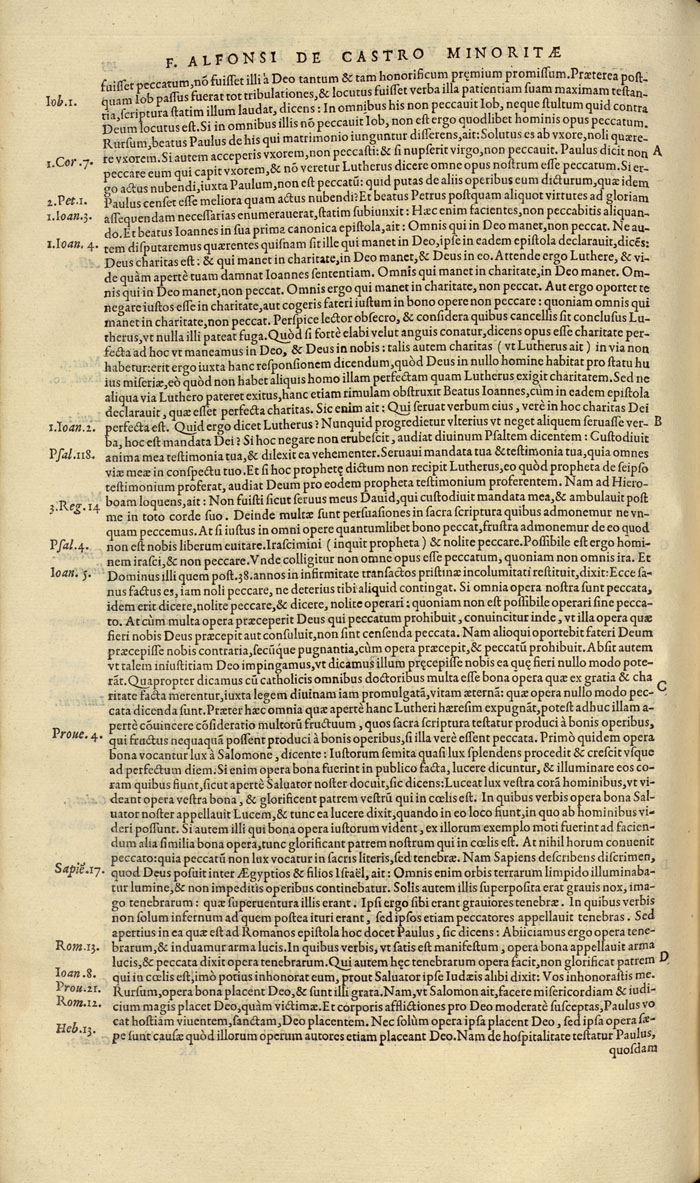 F. ALFONSI DE CASTRO MINORITÆ
fuisset peccatum,nō fuisset illi à Deo tantum & tam honorificum pręmium promissum.Præterea post-
Iob.1. quam Iob passus fuerat tot tribulationes,& locutus fuisset verba illa patientiam suam maximam testan-
tia,scriptura statim illum laudat, dicens : In omnibus his non peccauit Iob, neque stultum quid contra
Deum locutus est.Si in omnibus illis nō peccauit Iob, non est ergo quodlibet hominis opus peccatum.
Rursum,beatus Paulus de his qui matrimonio iunguntur disserens,ait:Solutus es ab vxore,noli quære-
1.Cor.7. re vxorem.Si autem acceperis vxorem,non peccasti:& si nupserit virgo,non peccauit. Paulus dicit non A
peccare eum qui capit vxorem,& nō veretur Lutherus dicere omne opus nostrum esse peccatum.Si er-
go actus nubendi,iuxta Paulum,non est peccatū: quid putas de aliis operibus eum dicturum,quæ idem
2.Pet.1. Paulus censet esse meliora quàm actus nubendi?Et beatus Petrus postquam aliquot virtutes ad gloriam
1.Ioan.3. assequendam necessarias enumerauerat,statim subiunxit : Hæc enim facientes,non peccabitis aliquan-
do.Et beatus Ioannes in sua prima canonica epistola,ait : Omnis qui in Deo manet,non peccat. Ne au-
1.Ioan. 4. tem disputaremus quærentes quisnam sit ille qui manet in Deo,ipse in eadem epistola declarauit,dicēs:
Deus charitas est : & qui manet in charitate,in Deo manet,& Deus in eo. Attende ergo Luthere, & vi-
de quàm apertè tuam damnat Ioannes sententiam. Omnis qui manet in charitate,in Deo manet. Om-
nis qui in Deo manet,non peccat. Omnis ergo qui manet in charitate, non peccat. Aut ergo oportet te
negare iustos esse in charitate,aut cogeris fateri iustum in bono opere non peccare : quoniam omnis qui
manet in charitate,non peccat. Perspice lector obsecro, & considera quibus cancellis sit conclusus Lu-
therus,vt nulla illi pateat fuga. Quòd si fortè elabi velut anguis conatur,dicens opus esse charitate per-
fecta ad hoc vt maneamus in Deo, & Deus in nobis : talis autem charitas ( vt Lutherus ait ) in via non
habetur:erit ergo iuxta hanc responsionem dicendum,quòd Deus in nullo homine habitat pro statu hu
ius miseriæ,eò quòd non habet aliquis homo illam perfectam quam Lutherus exigit charitatem.Sed ne
aliqua via Luthero pateret exitus,hanc etiam rimulam obstruxit Beatus Ioannes,cùm in eadem epistola
declarauit, quæ esset perfecta charitas. Sic enim ait : Qui seruat verbum eius, verè in hoc charitas Dei
1.Ioan.2. perfecta est. Quid ergo dicet Lutherus? Nunquid progredietur vlterius vt neget aliquem seruasse ver- B
ba, hoc est mandata Dei ? Si hoc negare non erubescit, audiat diuinum Psaltem dicentem : Custodiuit
Psal.118. anima mea testimonia tua,& dilexit ea vehementer.Seruaui mandata tua & testimonia tua,quia omnes
viæ meæ in conspectu tuo.Et si hoc prophetę dictum non recipit Lutherus,eo quòd propheta de seipso
testimonium proferat, audiat Deum pro eodem propheta testimonium proferentem. Nam ad Hiero-
3.Reg.14 boam loquens,ait : Non fuisti sicut seruus meus Dauid,qui custodiuit mandata mea,& ambulauit post
me in toto corde suo . Deinde multæ sunt persuasiones in sacra scriptura quibus admonemur ne vn-
quam peccemus.At si iustus in omni opere quantumlibet bono peccat,frustra admonemur de eo quod
Psal.4. non est nobis liberum euitare.Irascimini ( inquit propheta ) & nolite peccare.Possibile est ergo homi-
nem irasci,& non peccare.Vnde colligitur non omne opus esse peccatum, quoniam non omnis ira. Et
Ioan. 5. Dominus illi quem post.38.annos in infirmitate transactos pristinæ incolumitati restituit,dixit:Ecce sa-
nus factus es, iam noli peccare, ne deterius tibi aliquid contingat. Si omnia opera nostra sunt peccata,
idem erit dicere,nolite peccare,& dicere, nolite operari : quoniam non est possibile operari sine pecca-
to. At cùm multa opera præceperit Deus qui peccatum prohibuit, conuincitur inde , vt illa opera quæ
fieri nobis Deus præcepit aut consuluit,non sint censenda peccata. Nam alioqui oportebit fateri Deum
præcepisse nobis contraria,secūque pugnantia,cùm opera præcepit,& peccatū prohibuit. Absit autem
vt talem iniustitiam Deo impingamus,vt dicamus illum pręcepisse nobis ea quę fieri nullo modo pote-
rāt.Quapropter dicamus cū catholicis omnibus doctoribus multa esse bona opera quæ ex gratia & cha
ritate facta merentur,iuxta legem diuinam iam promulgatā,vitam æternā: quæ opera nullo modo pec- C
cata dicenda sunt.Præter hæc omnia quæ apertè hanc Lutheri hæresim expugnāt,potest adhuc illam a-
pertè cōuincere cōsideratio multorū fructuum , quos sacra scriptura testatur produci à bonis operibus,
Proue. 4. qui fructus nequaquā possent produci à bonis operibus,si illa verè essent peccata. Primò quidem opera
bona vocantur lux à Salomone, dicente : Iustorum semita quasi lux splendens procedit & crescit vsque
ad perfectum diem.Si enim opera bona fuerint in publico facta, lucere dicuntur, & illuminare eos co-
ram quibus fiunt,sicut apertè Saluator noster docuit,sic dicens:Luceat lux vestra corā hominibus,vt vi-
deant opera vestra bona , & glorificent patrem vestrū qui in cœlis est. In quibus verbis opera bona Sal-
uator noster appellauit Lucem,& tunc ea lucere dixit,quando in eo loco fiunt,in quo ab hominibus vi-
deri possunt. Si autem illi qui bona opera iustorum vident, ex illorum exemplo moti fuerint ad facien-
dum alia similia bona opera,tunc glorificant patrem nostrum qui in cœlis est. At nihil horum conuenit
peccato:quia peccatū non lux vocatur in sacris literis,sed tenebræ. Nam Sapiens describens discrimen,
Sapiē.17. quod Deus posuit inter Ægyptios & filios Israël, ait : Omnis enim orbis terrarum limpido illuminaba-
tur lumine,& non impeditis operibus continebatur. Solis autem illis superposita erat grauis nox, ima-
go tenebrarum : quæ superuentura illis erant . Ipsi ergo sibi erant grauiores tenebræ. In quibus verbis
non solum infernum ad quem postea ituri erant, sed ipsos etiam peccatores appellauit tenebras. Sed
apertius in ea quæ est ad Romanos epistola hoc docet Paulus , sic dicens : Abiiciamus ergo opera tene-
Rom.13. brarum,& induamur arma lucis.In quibus verbis, vt satis est manifestum , opera bona appellauit arma
lucis,& peccata dixit opera tenebrarum.Qui autem hęc tenebrarum opera facit,non glorificat patrem D
Ioan.8. qui in cœlis est,imò potius inhonorat eum, prout Saluator ipse Iudæis alibi dixit: Vos inhonorastis me.
Prou.21. Rursum,opera bona placent Deo,& sunt illi grata.Nam,vt Salomon ait,facere misericordiam & iudi-
Rom.12. cium magis placet Deo,quàm victimæ.Et corporis afflictiones pro Deo moderatè susceptas,Paulus vo
cat hostiam viuentem,sanctam,Deo placentem. Nec solùm opera ipsa placent Deo , sed ipsa opera sæ-
Heb.13. pe sunt causæ quòd illorum operum autores etiam placeant Deo.Nam de hospitalitate testatur Paulus,
quosdam